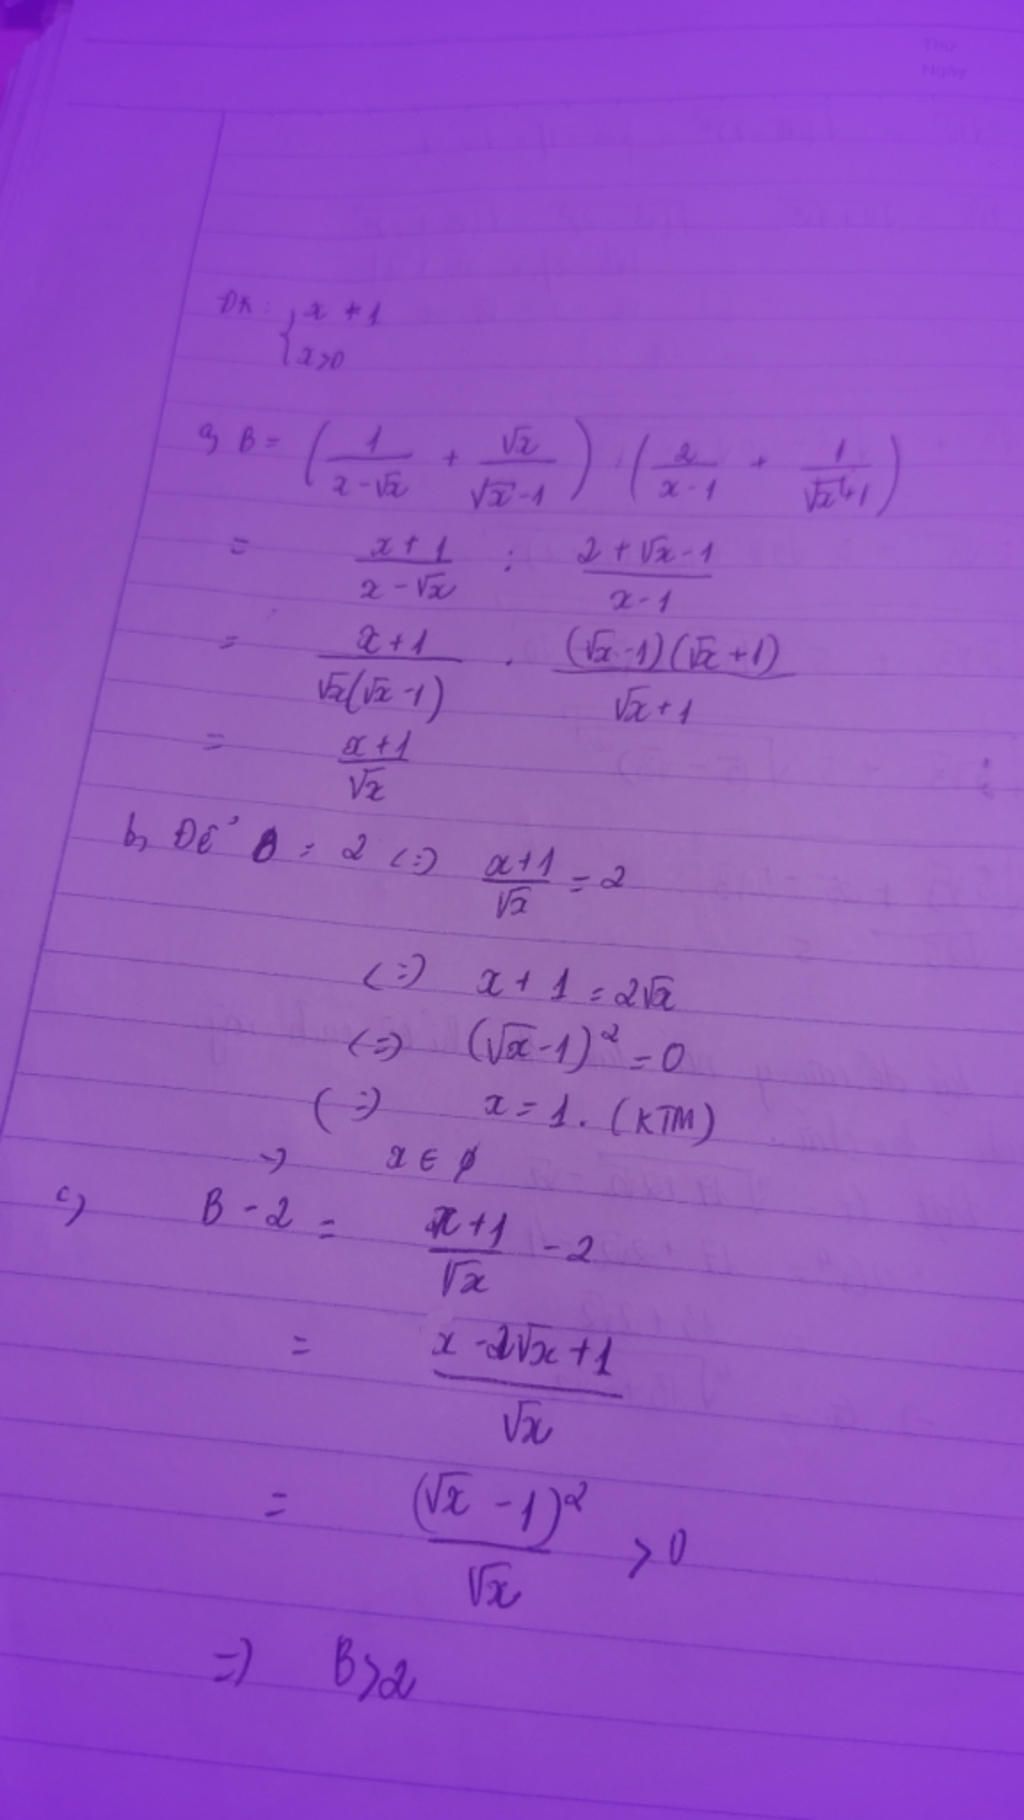 Thứ
Ngày
ĐK: { x ≠ 1
x>0
a, B = ( 1/(x-√x) + √x/(√x-1) ) : ( 2/(x-1) + 1/(√x+1) )
= (x+1)/(x-√x) : (2+√x-1)/(x-1)
= (x+1)/(√x(√x-1)) . ((√x-1)(√x+1))/(√x+1)
= (x+1)/√x
b, Để B = 2 <=> (x+1)/√x = 2
<=> x+1 = 2√x
<=> (√x-1)² = 0
<=> x = 1. (KTM)
-> x ∈ ∅
c) B - 2 = (x+1)/√x - 2
= (x-2√x+1)/√x
= (√x-1)²/√x > 0
=> B>2